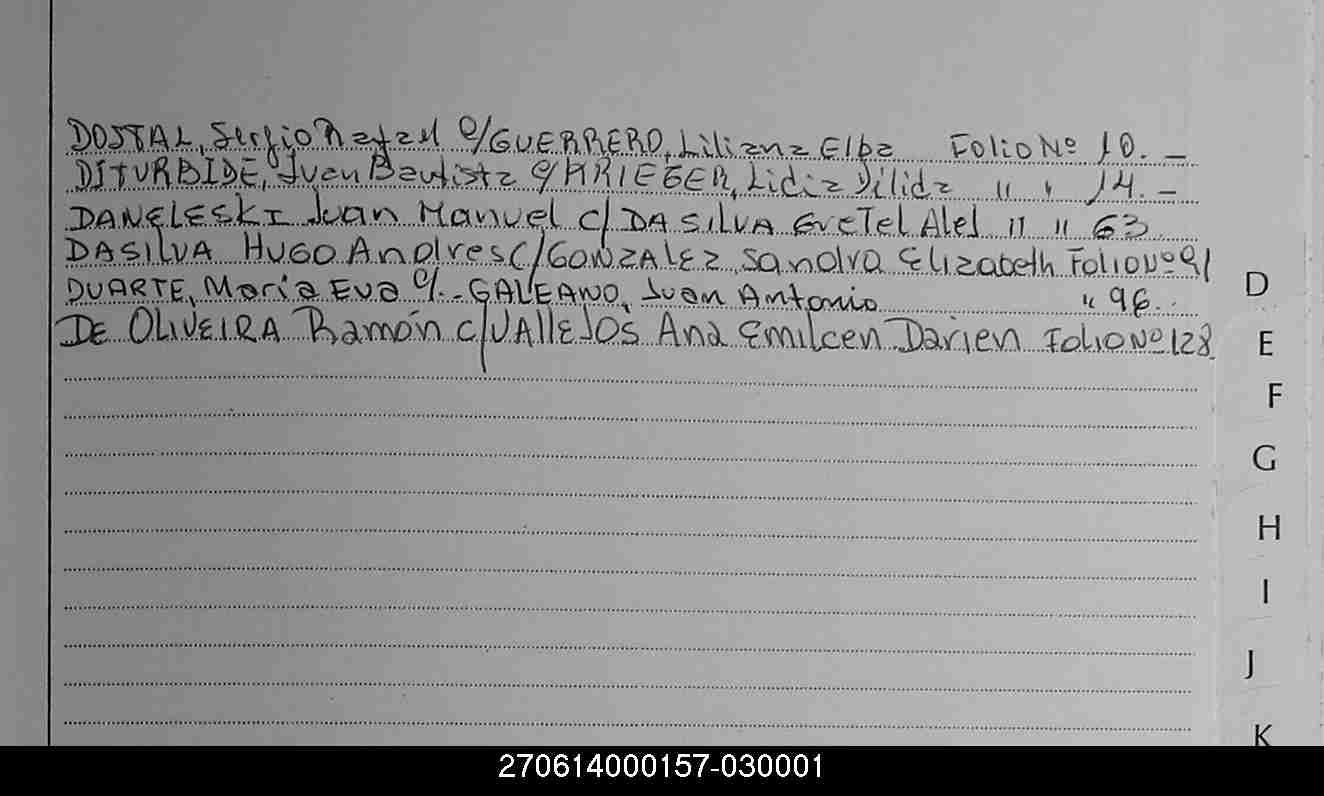 DOSTAL, Sergio Rafael c/GUERRERO, Liliana Elba Folio Nº 10. _
DITURBIDE, Juan Bautista c/KRIEGER, Lidia Dilida " " 14. _
DANELESKI Juan Manuel c/ DA SILVA Gretel Alej " " 63
DASILVA HUGO Andres C/GONZALEZ Sandra Elizabeth Folio Nº 91
DUARTE, Maria Eva c/. GALEANO, Juan Antonio " 96..
DE OLIVEIRA Ramón c/VALLEJOS Ana Emilcen Darien Folio Nº 128
D
E
F
G
H
I
J
K
270614000157-030001